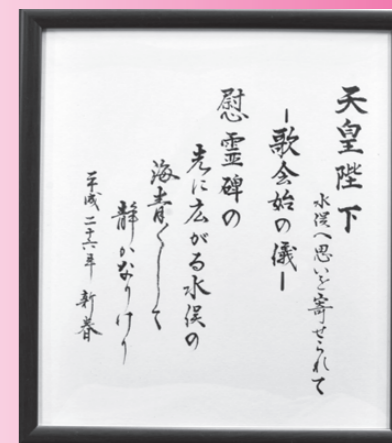 天皇陛下
水俣へ思いを寄せられて
-歌会始の儀-
慰霊碑の
先に広がる水俣の
海青くして
静かなりけり
平成二十六年 新春